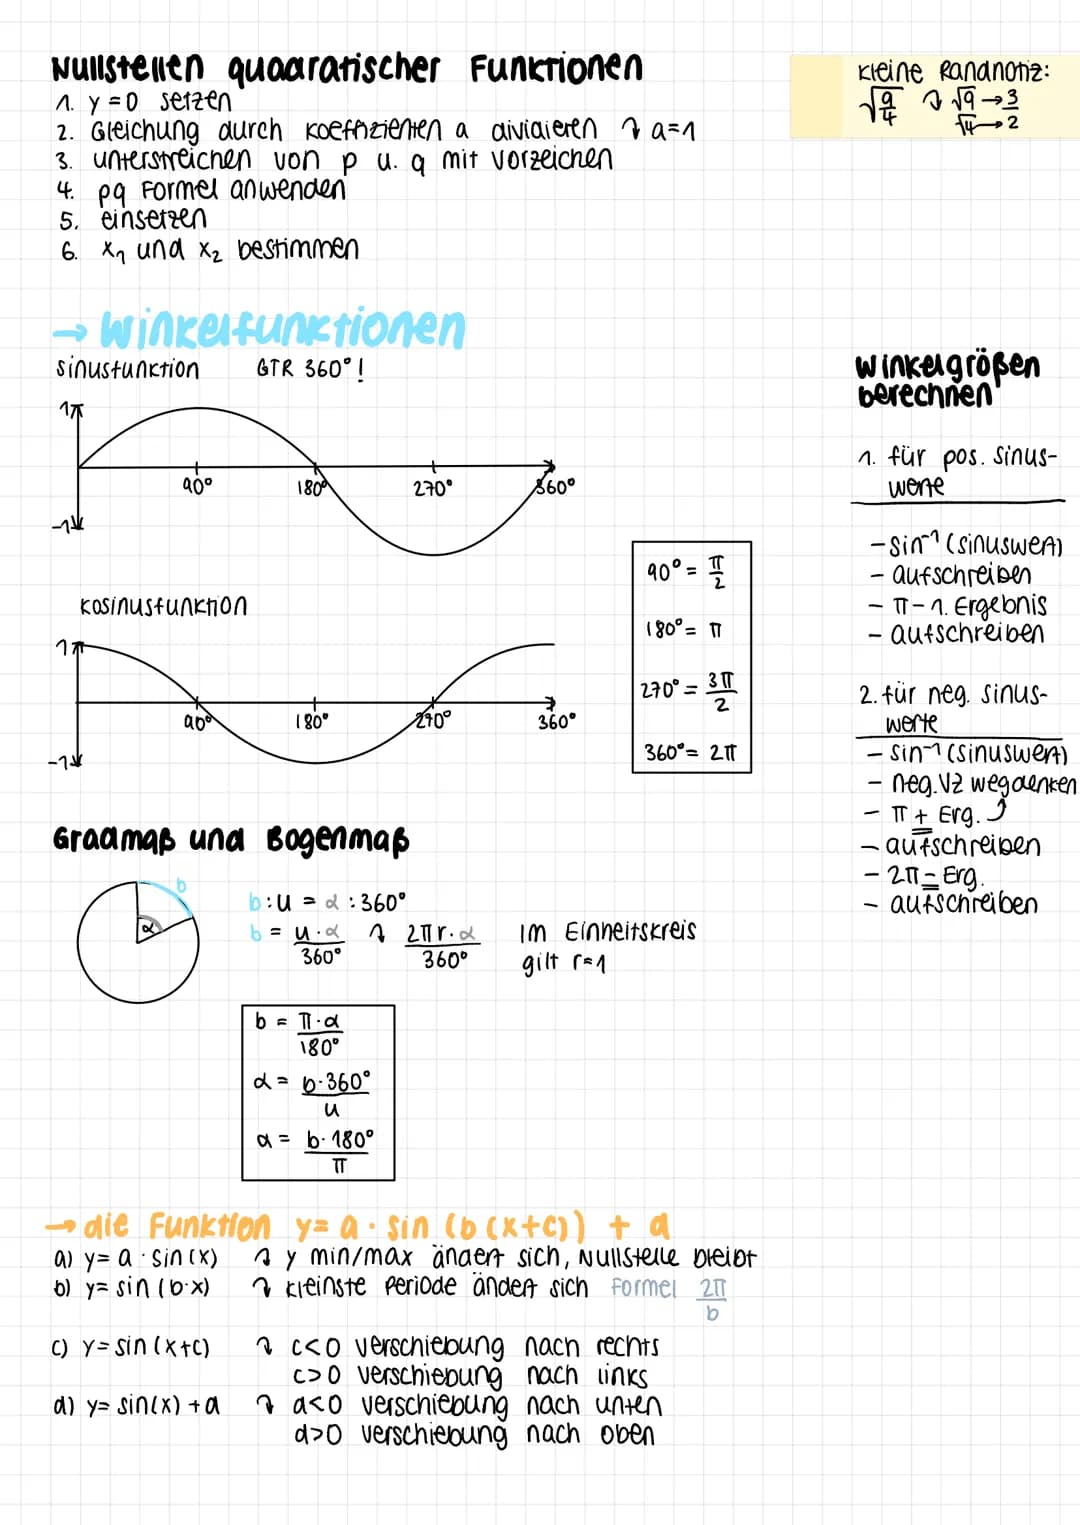 Nullstellen quadratischer Funktionen
1. y = 0 setzen
2. Gleichung durch Koeffizienten a dividieren ↷ a=1
3. unterstreichen von p u. q mit Vorzeichen
4. pq Formel anwenden
5. einsetzen
6. x₁ und x₂ bestimmen
Kleine Randnotiz:
√(9/4) ↷ √9 → 3
√4 → 2
→ Winkelfunktionen
Sinusfunktion GTR 360°!
1
90° 180° 270° 360°
-1
Kosinusfunktion
1
90° 180° 270° 360°
-1
90° = π/2
180° = π
270° = 3π/2
360° = 2π
Winkelgrößen
berechnen
1. für pos. Sinus-
werte
- sin⁻¹ (sinuswert)
- aufschreiben
- π - 1. Ergebnis
- aufschreiben
2. für neg. Sinus-
werte
- sin⁻¹ (sinuswert)
- neg. VZ wegdenken
- π + Erg.
- aufschreiben
- 2π - Erg.
- aufschreiben
Gradmaß und Bogenmaß
b
α
b : u = α : 360°
b = u · α / 360° ↷ 2πr · α / 360°
im Einheitskreis
gilt r=1
b = π · α / 180°
α = b · 360° / u
α = b · 180° / π
→ die Funktion y = a · sin (b (x+c)) + d
a) y = a · sin (x) ↷ y min/max ändert sich, Nullstelle bleibt
b) y = sin (b·x) ↷ kleinste Periode ändert sich Formel 2π/b
c) y = sin (x+c) ↷ c<0 Verschiebung nach rechts
c>0 Verschiebung nach links
d) y = sin(x) + d ↷ d<0 Verschiebung nach unten
d>0 Verschiebung nach oben